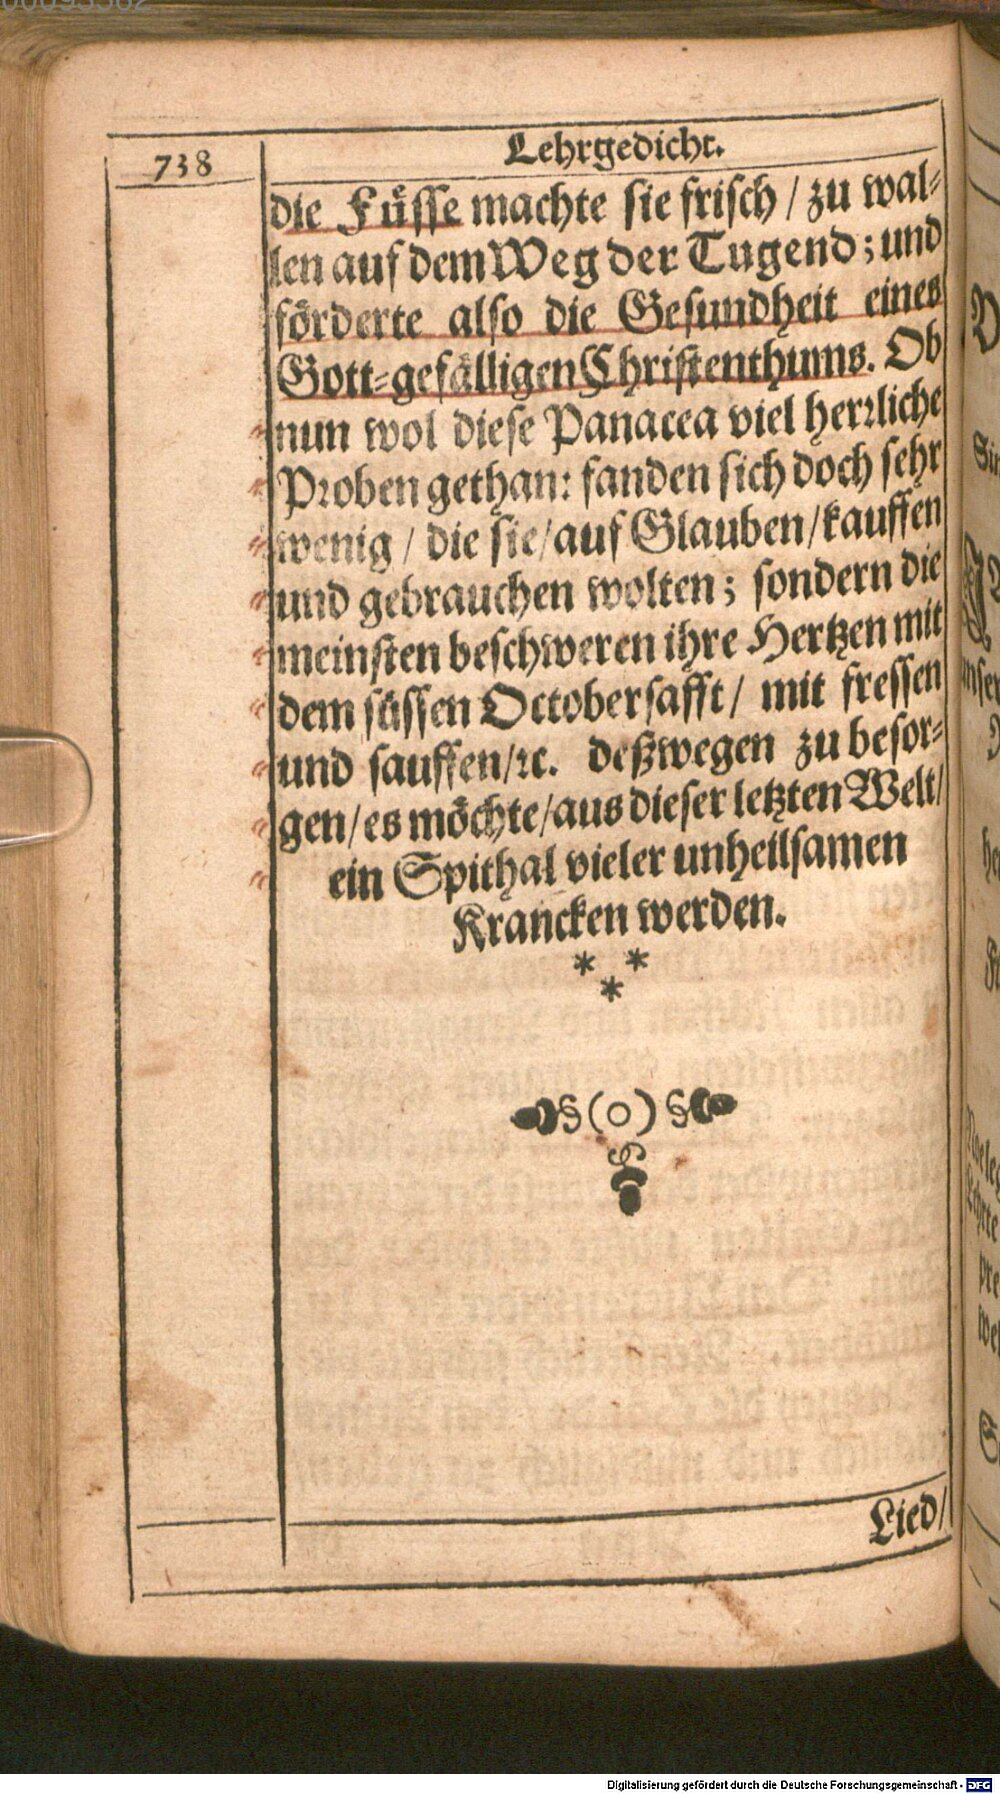 738
Lehrgedicht.
die Füsse machte sie frisch / zu wal-
len auf dem Weg der Tugend; und
förderte also die Gesundheit eines
Gott-gefälligen Christenthums. Ob
nun wol diese Panacea viel herꝛliche
Proben gethan: fanden sich doch sehr
wenig / die sie / auf Glauben / kauffen
und gebrauchen wolten; sondern die
meinsten beschweren ihre Hertzen mit
dem süssen Octobersafft / mit fressen
und sauffen / ꝛc. deßwegen zu besor-
gen / es möchte / aus dieser letzten Welt /
ein Spithal vieler unheilsamen
Krancken werden.
* *
*
§ ( o ) §
§
Lied /
Digitalisierung gefördert durch die Deutsche Forschungsgemeinschaft - DFG